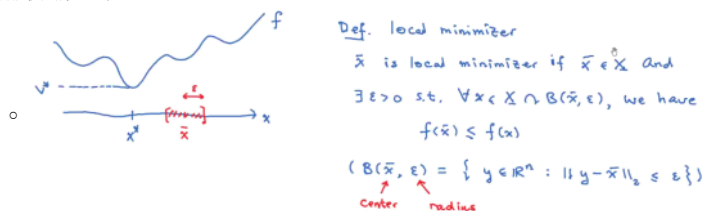 f
v*
ε
x* x̄ x
Def. local minimizer
x̄ is local minimizer if x̄ ∈ X and
∃ ε>0 s.t. ∀ x ∈ X ∩ B(x̄, ε), we have
f(x̄) ≤ f(x)
( B(x̄, ε) = { y ∈ ℝⁿ : ‖ y - x̄ ‖₂ ≤ ε } )
center radius